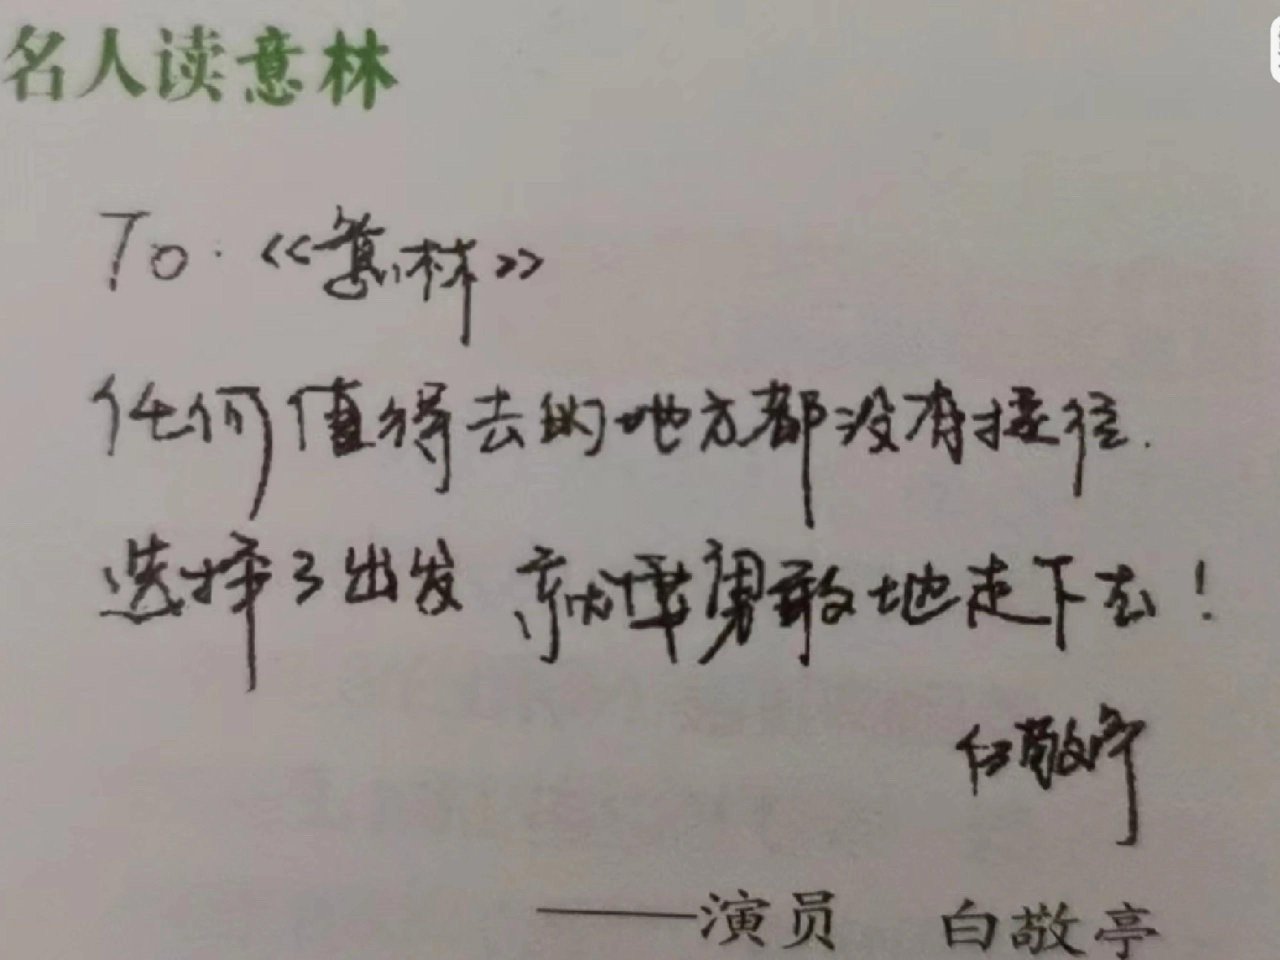 名人读意林
To.《意林》
任何值得去的地方都没有捷径.
选择了出发 就僅勇敢地走下去!
白敬亭
——演员 白敬亭